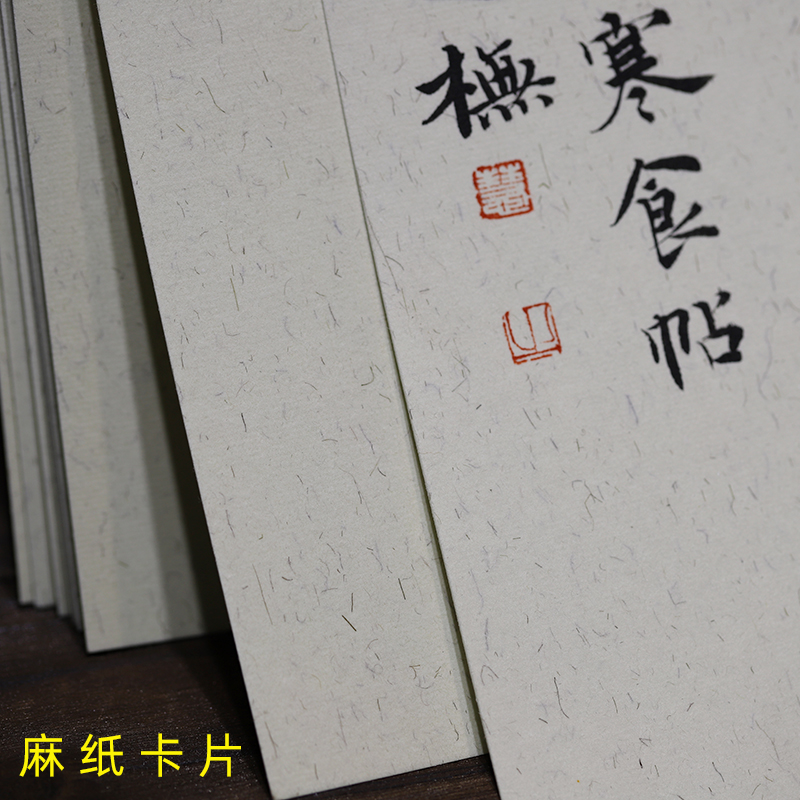 寒食帖
橅
山
麻纸卡片